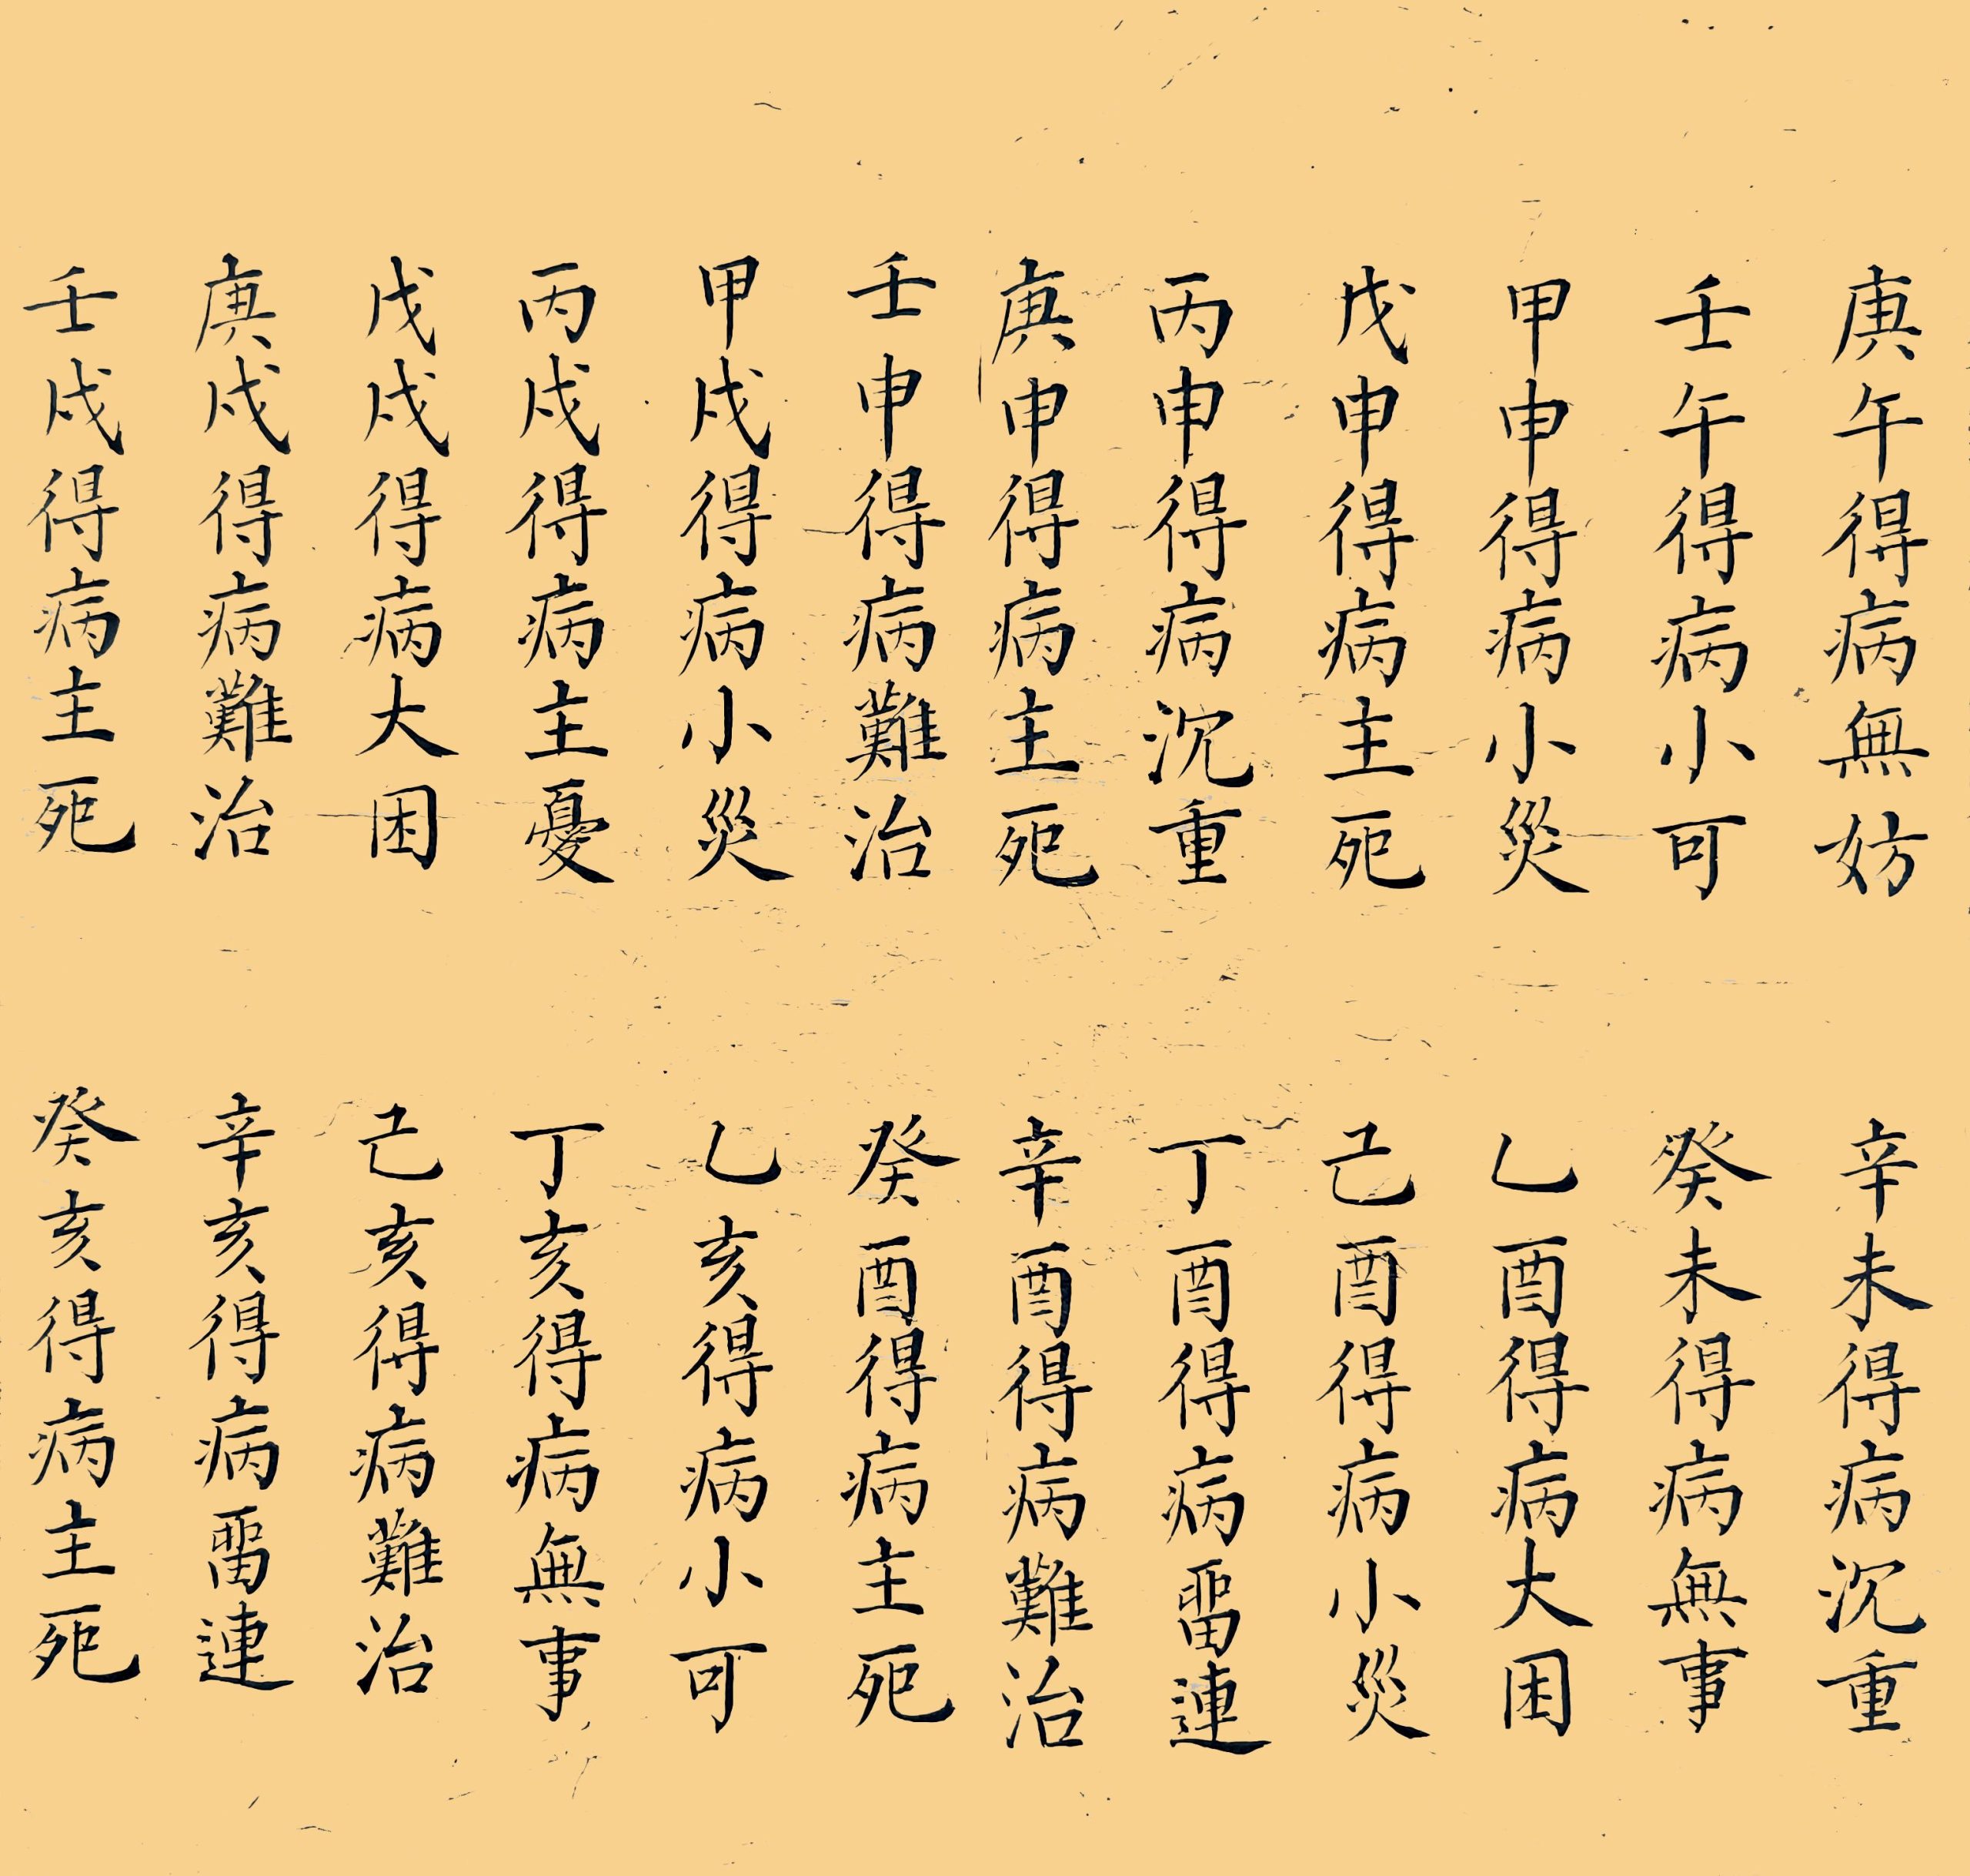 庚午得病無妨 辛未得病沉重
壬午得病小可 癸未得病無事
甲申得病小災 乙酉得病大困
戊申得病主死 己酉得病小災
丙申得病沉重 丁酉得病畱連
庚申得病主死 辛酉得病難治
壬申得病難治 癸酉得病主死
甲戌得病小災 乙亥得病小可
丙戌得病主憂 丁亥得病無事
戊戌得病大困 己亥得病難治
庚戌得病難治 辛亥得病畱連
壬戌得病主死 癸亥得病主死